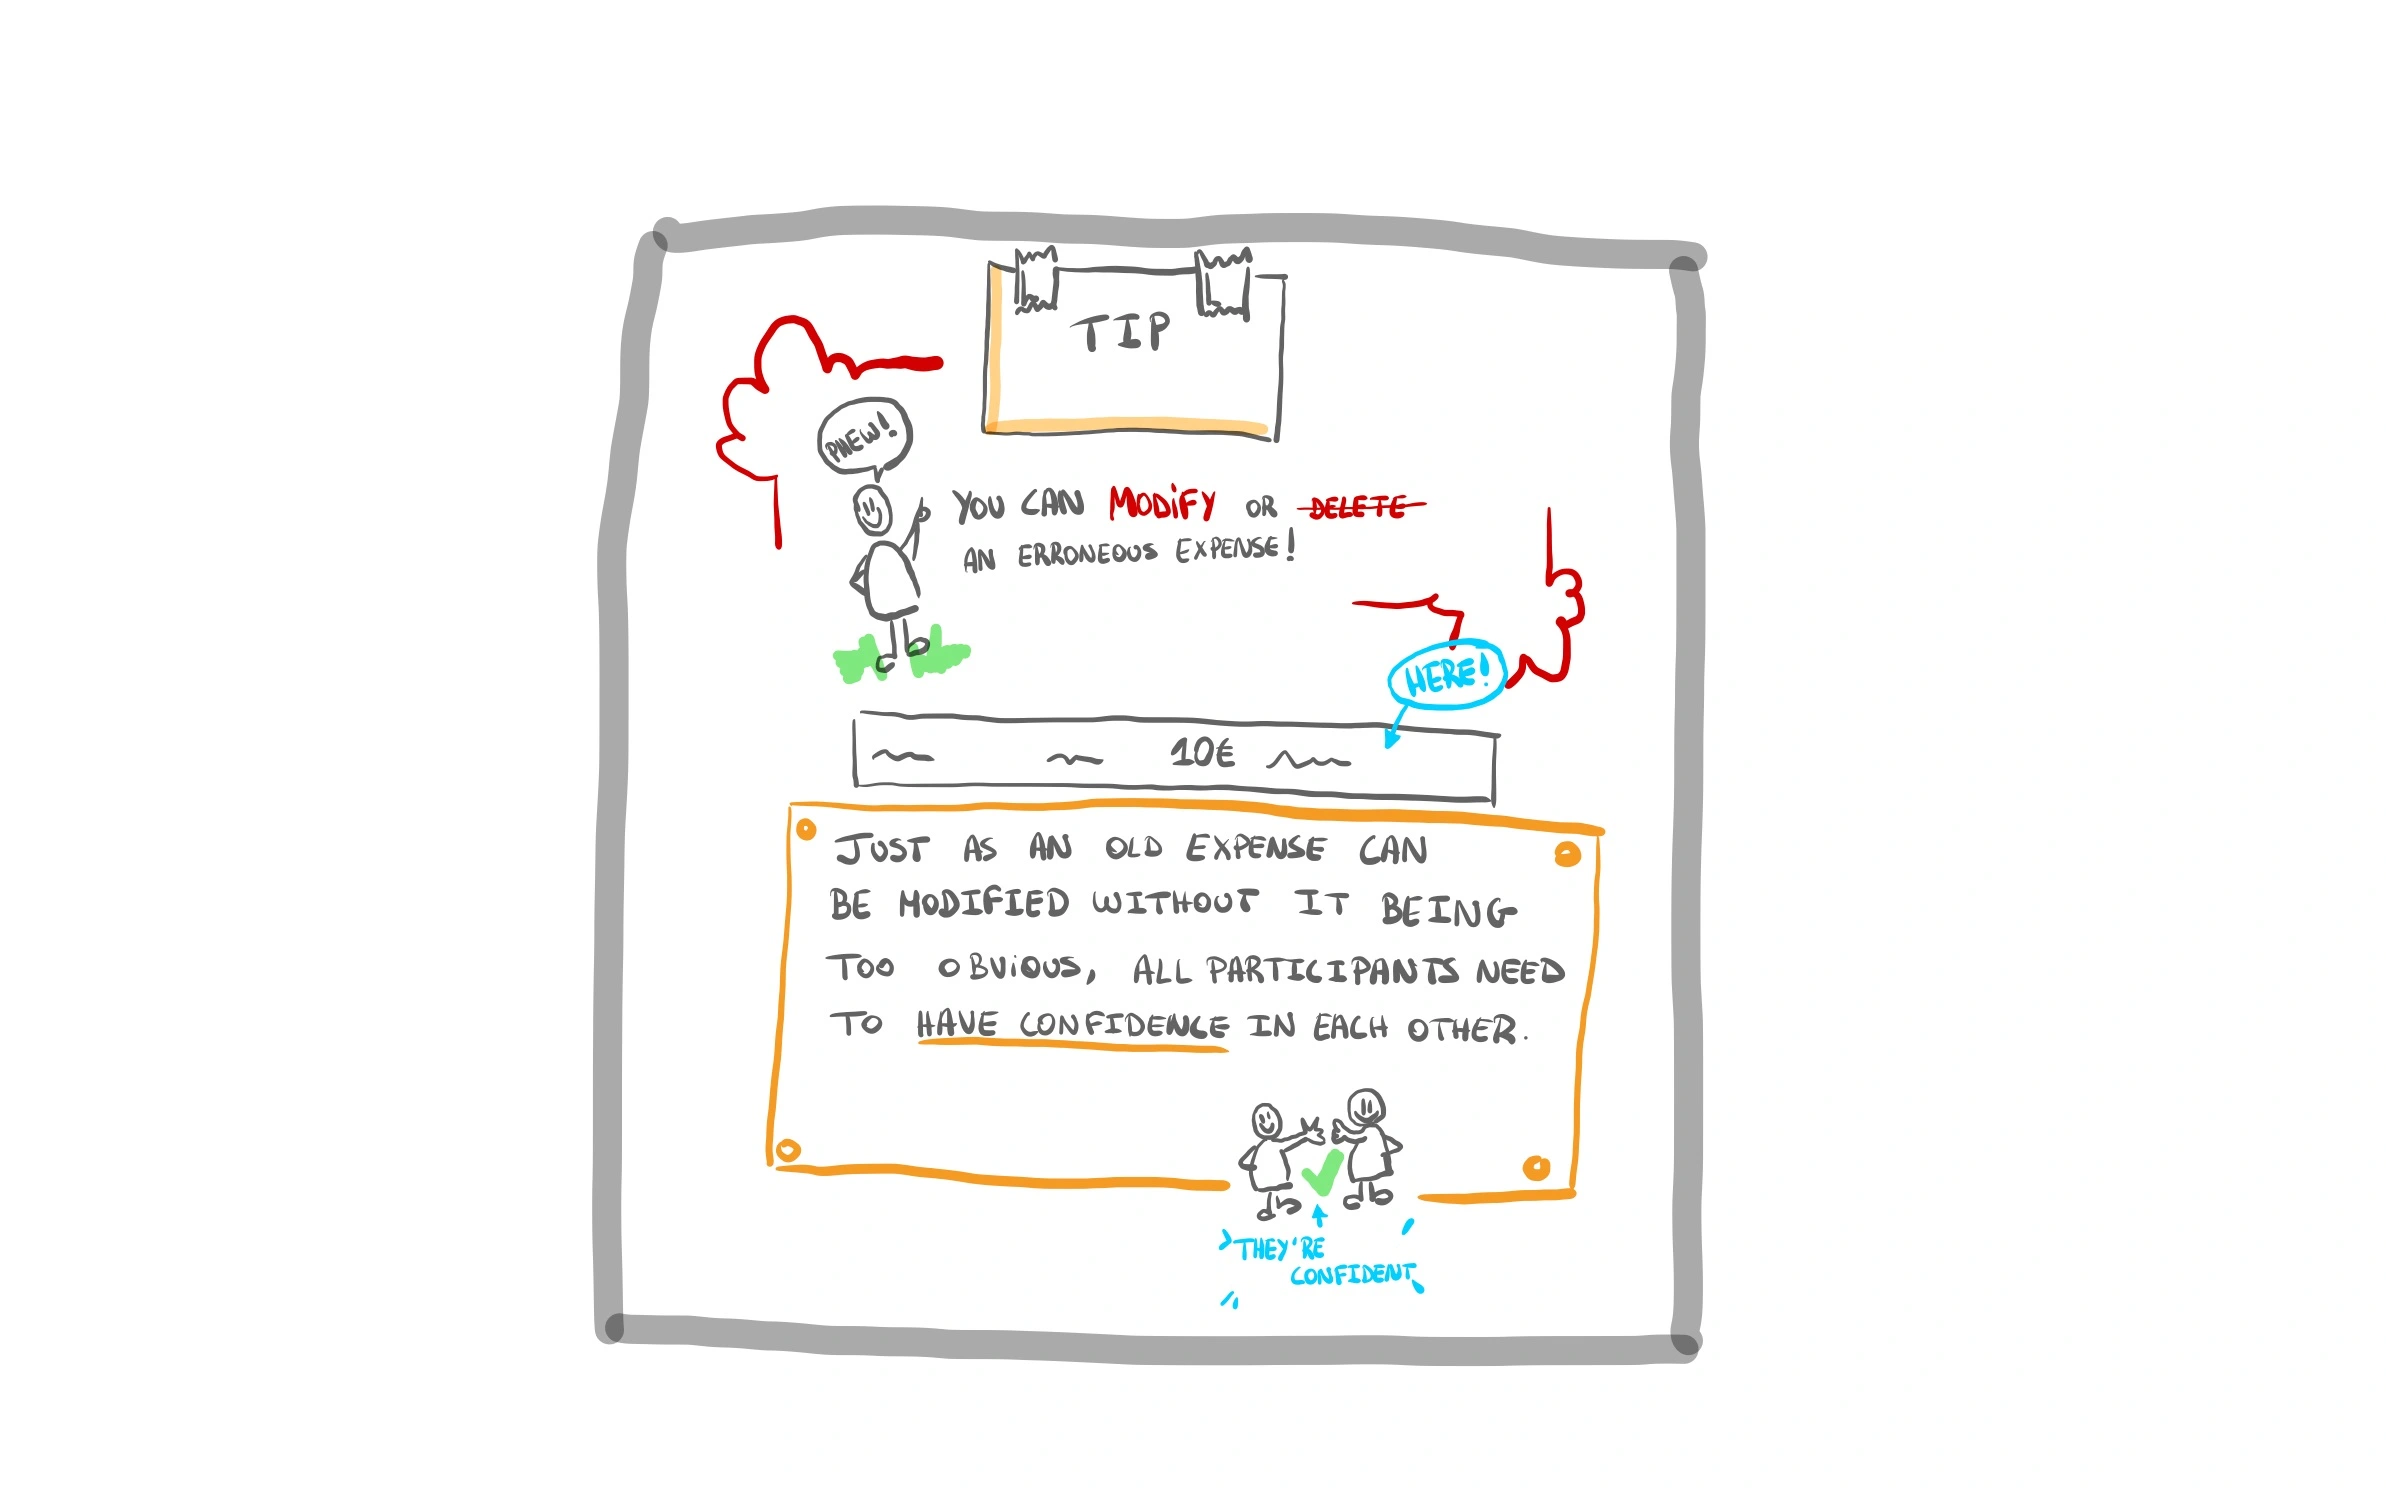 TIP
PHEW!
YOU CAN MODiFY OR DELETE
AN ERRONEOUS EXPENSE!
HERE!
10€
JUST AS AN OLD EXPENSE CAN
BE MODIFIED WITHOUT IT BEING
TOO OBViOUS, ALL PARTICIPANTS NEED
TO HAVE CONFIDENCE IN EACH OTHER.
THEY'RE
CONFIDENT